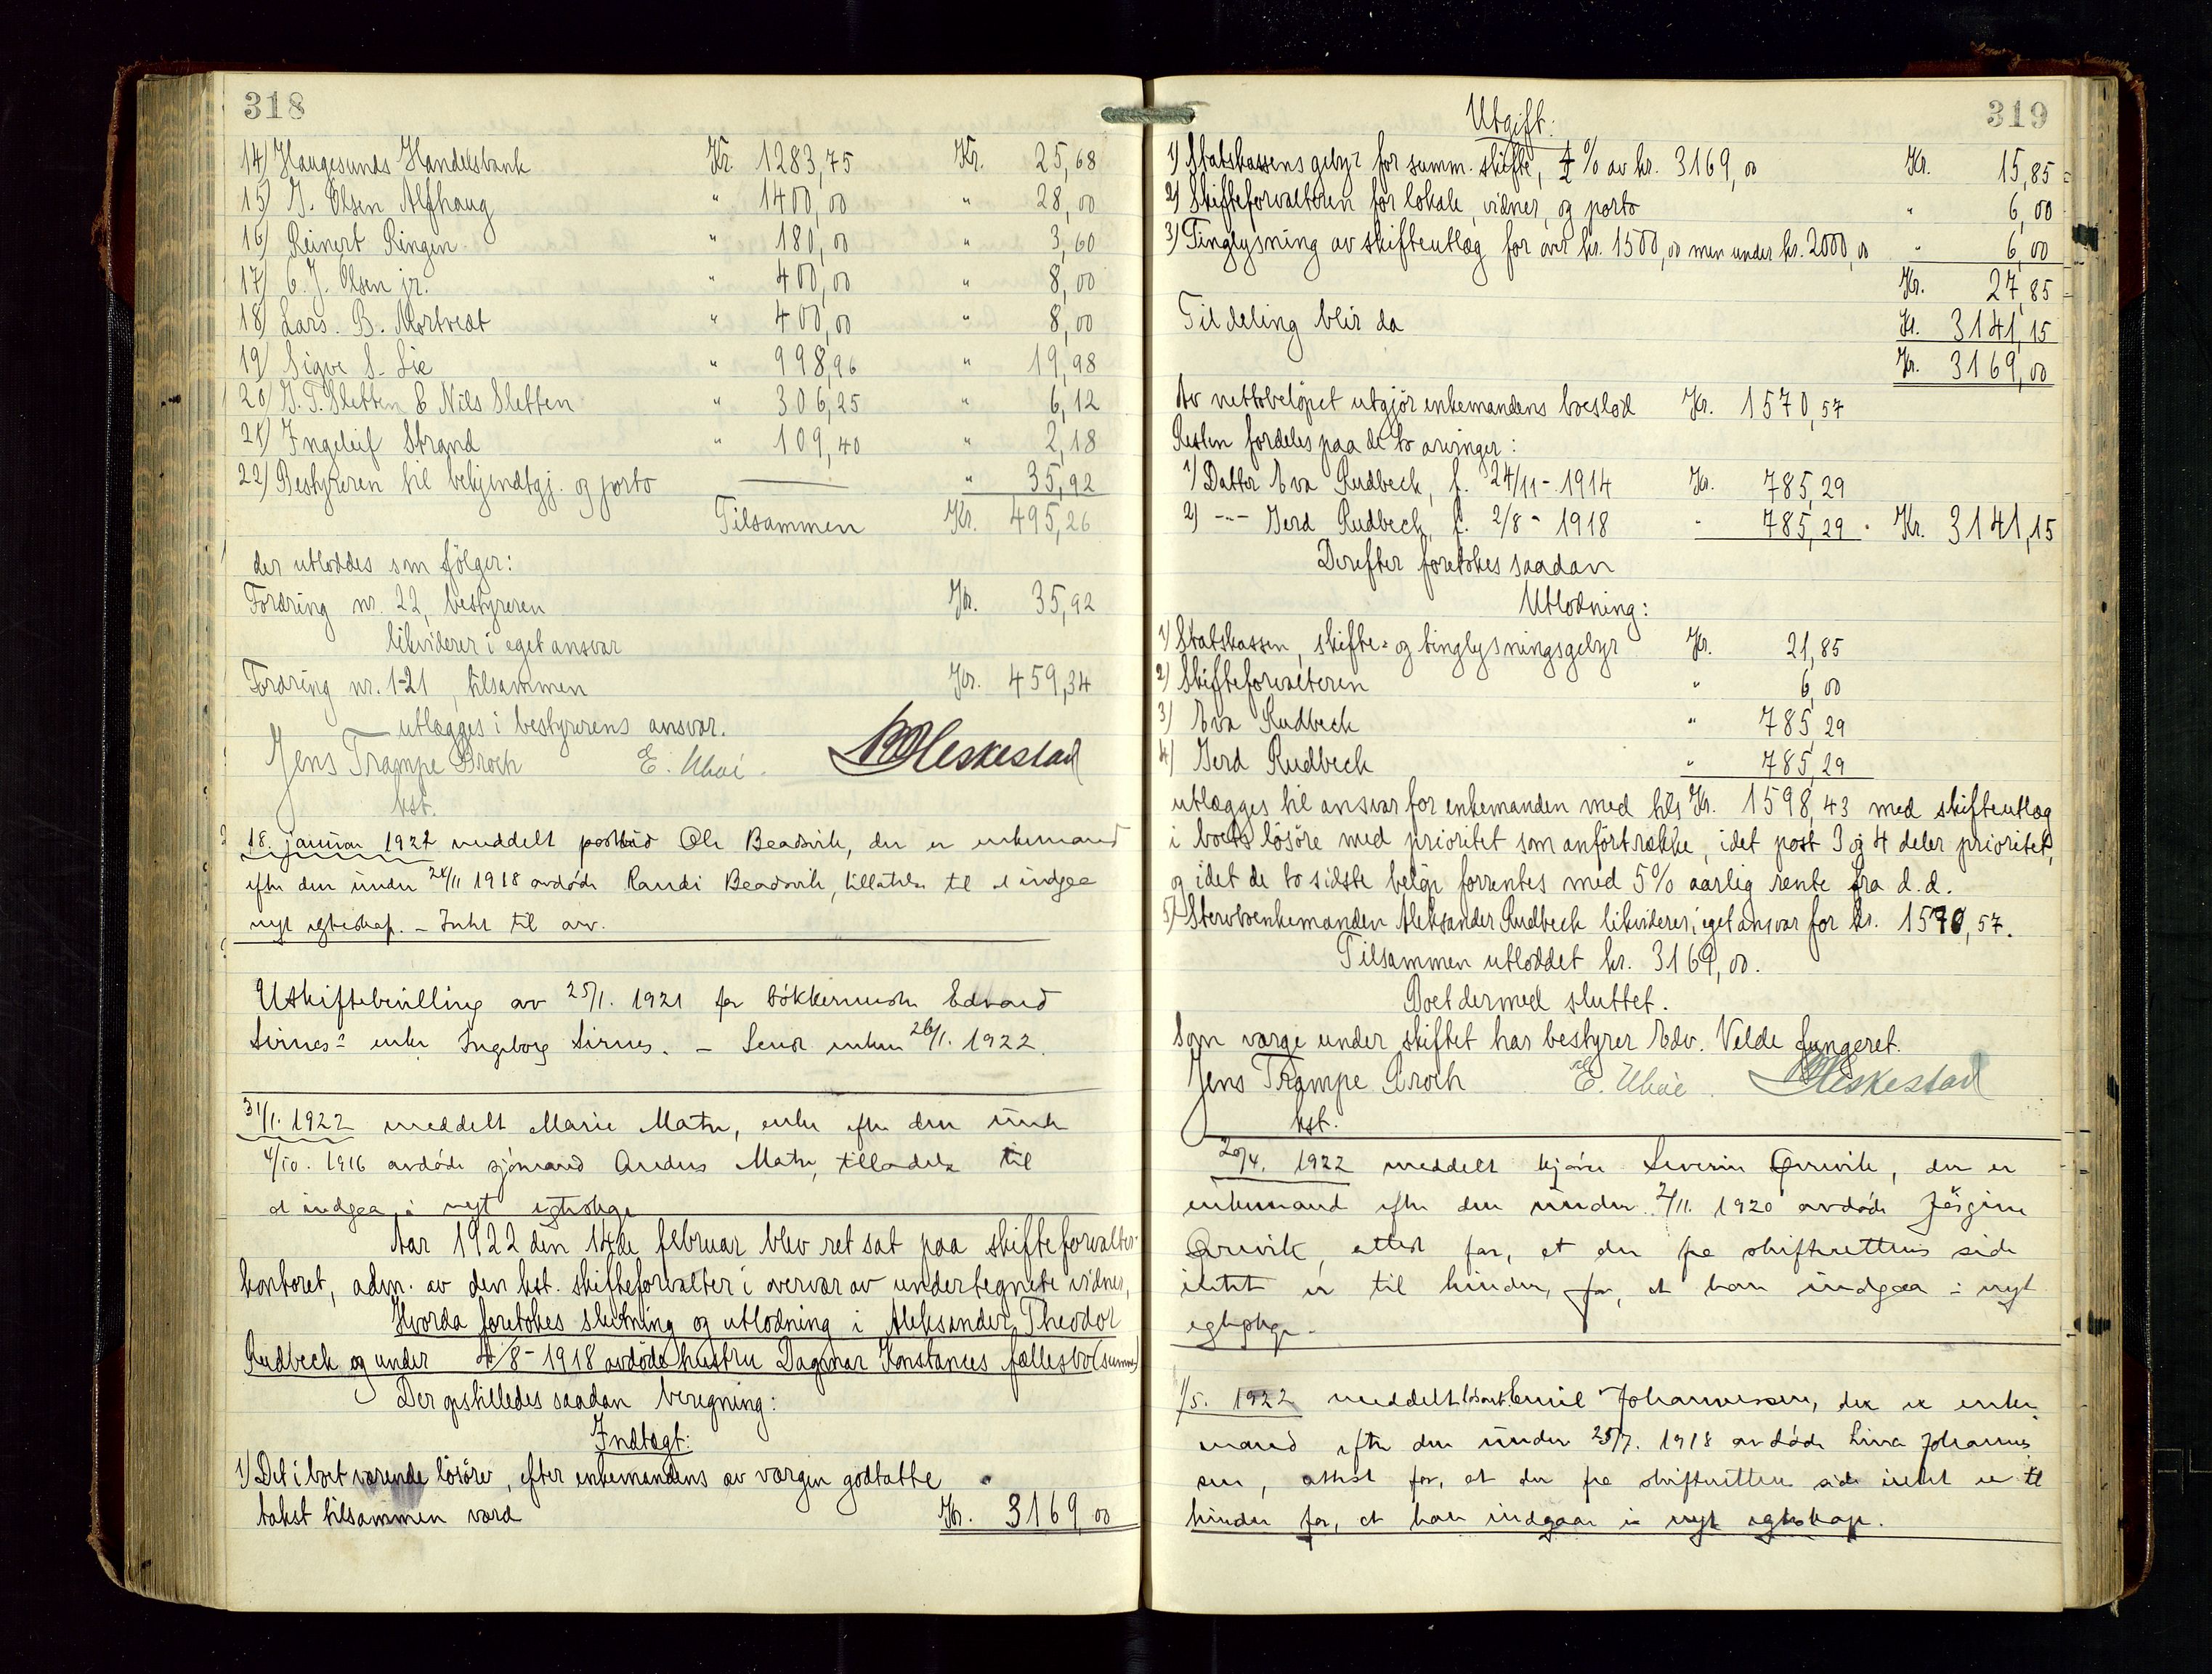 318
14) Haugesunds Handelsbank Kr. 1283,75 Kr. 25,68
15) J. Olsen Alfhaug " 1400,00 " 28,00
16) Reinert Ringen " 180,00 " 3,60
17) C. J. Olsen jr. " 400,00 " 8,00
18) Lars. B. Mortvedt " 400,00 " 8,00
19) Sigve S. Lie " 998,96 " 19,98
20) J. T. Sletten & Nils Sletten " 306,25 " 6,12
21) Ingeleif Strand " 109,40 " 2,18
22) Bestyreren til bekjendtgj. og porto " 35,92
Tilsammen Kr. 495,26
der utloddes som følger:
Fordring nr. 22, bestyreren Kr. 35,92
likviderer i eget ansvar
Fordring nr. 1-21, tilsammen Kr. 459,34
utlægges i bestyrerens ansvar.
Jens Trampe Broch E. Uhai. Heskestad
kst.
18. januar 1922 meddelt postbud Ole Beadsvik, der er enkemand
efter den under 28/11 1918 avdøde Randi Beadsvik, tillatelse til at indgaa
nyt egteskap. –
Uskiftebevilling av 25/1. 1921 for bøkkermester Edvard
Sirnes' enke Ingeborg Sirnes. – Sendt enken 26/1. 1922.
31/1. 1922 meddelt Marie Matre, enke efter den under
4/10. 1916 avdøde sjømand Anders Matre, tilladelse til
at indgaa i nyt egteskap
Aar 1922 den 14de februar blev ret sat paa skifteforvalter-
kontoret, adm. av den kst. skifteforvalter i overvær av undertegnete vidner,
Hvorda foretokes slutning og utlodning i Aleksander Theodor
Rudbeck og under 4/8 - 1918 avdøde hustru Dagmar Konstances fællesbo (summ)
Der opstilledes saadan beregning:
Indtægt:
1) Det i boet værende løsøre, efter enkemandens avværgen godtatte
takst tilsammen værd Kr. 3169,00
319
Utgift:
1) Statskassens gebyr for summ. skifte, ½ % av kr. 3169,00 Kr. 15,85
2) Skifteforvalteren for lokale, vidner, og porto " 6,00
3) Tinglysning av skifteutlæg for over kr. 1500,00 men under kr. 2000,00 " 6,00
Kr. 27,85
Til deling blir da Kr. 3141,15
Kr. 3169,00
Av nettobeløpet utgjør enkemandens boeslod Kr. 1570,57
Resten fordeles paa de to arvinger:
1) Datter Eva Rudbeck, f. 24/11 - 1914 Kr. 785,29
2) -"- Gerd Rudbeck, f. 2/8 - 1918 " 785,29 . Kr. 3141,15
Derefter foretokes saadan
Utlodning:
1) Statskassen, skifte- og tinglysningsgebyr Kr. 21,85
2) Skifteforvalteren " 6,00
3) Eva Rudbeck " 785,29
4) Gerd Rudbeck " 785,29
utlægges til ansvar for enkemanden med tils Kr. 1598,43 med skifteutlæg
i boets løsøre med prioritet som anført række, idet post 3 og 4 deler prioritet,
og idet de to sidste beløp forrentes med 5% aarlig rente fra d.d.
5) Stervboenkemanden Aleksander Rudbeck likviderer i eget ansvar for kr. 1570,57.
Tilsammen utloddet kr. 3169,00.
Boet dermed sluttet.
Som værge under skiftet har bestyrer Edv. Velde fungeret.
Jens Trampe Broch E. Uhai. Heskestad
kst.
20/4. 1922 meddelt kjører Severin Qvevik, der er
enkemand efter den under 2/11. 1920 avdøde Jørgine
Qvevik, attest for, at der fra skifterettens side
intet er til hinder for, at han indgaar i nyt
egteskap.
1/5. 1922 meddelt Emil Johannessen, der er enke-
mand efter den under 25/7. 1918 avdøde Lina Johannes-
sen, attest for, at der fra skifterettens side intet er til
hinder for, at han indgaar i nyt egteskap.